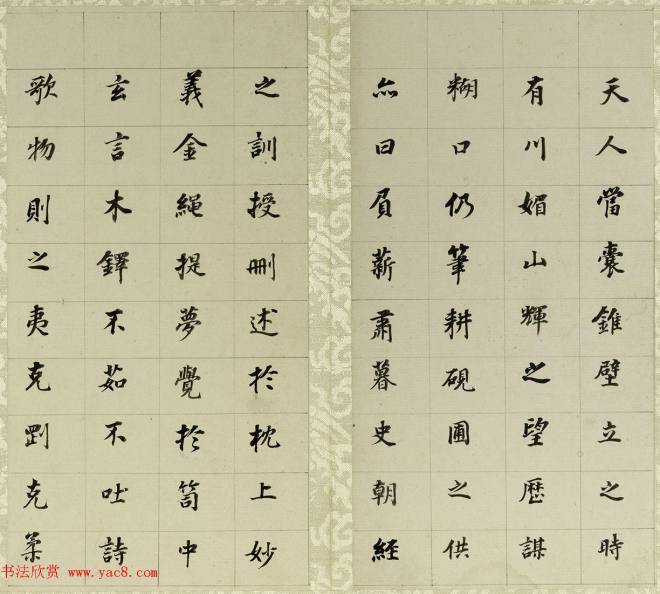 天人當囊錐壁立之時
有川媚山輝之望歷謀
糊口仍筆耕硯圃之供
亦曰負薪肅暮史朝經
之訓授刪述於枕上妙
義金繩提夢覺於笥中
玄言木鐸不茹不吐詩
歌物則之夷克剛克柔
书法欣赏 www.yac8.com